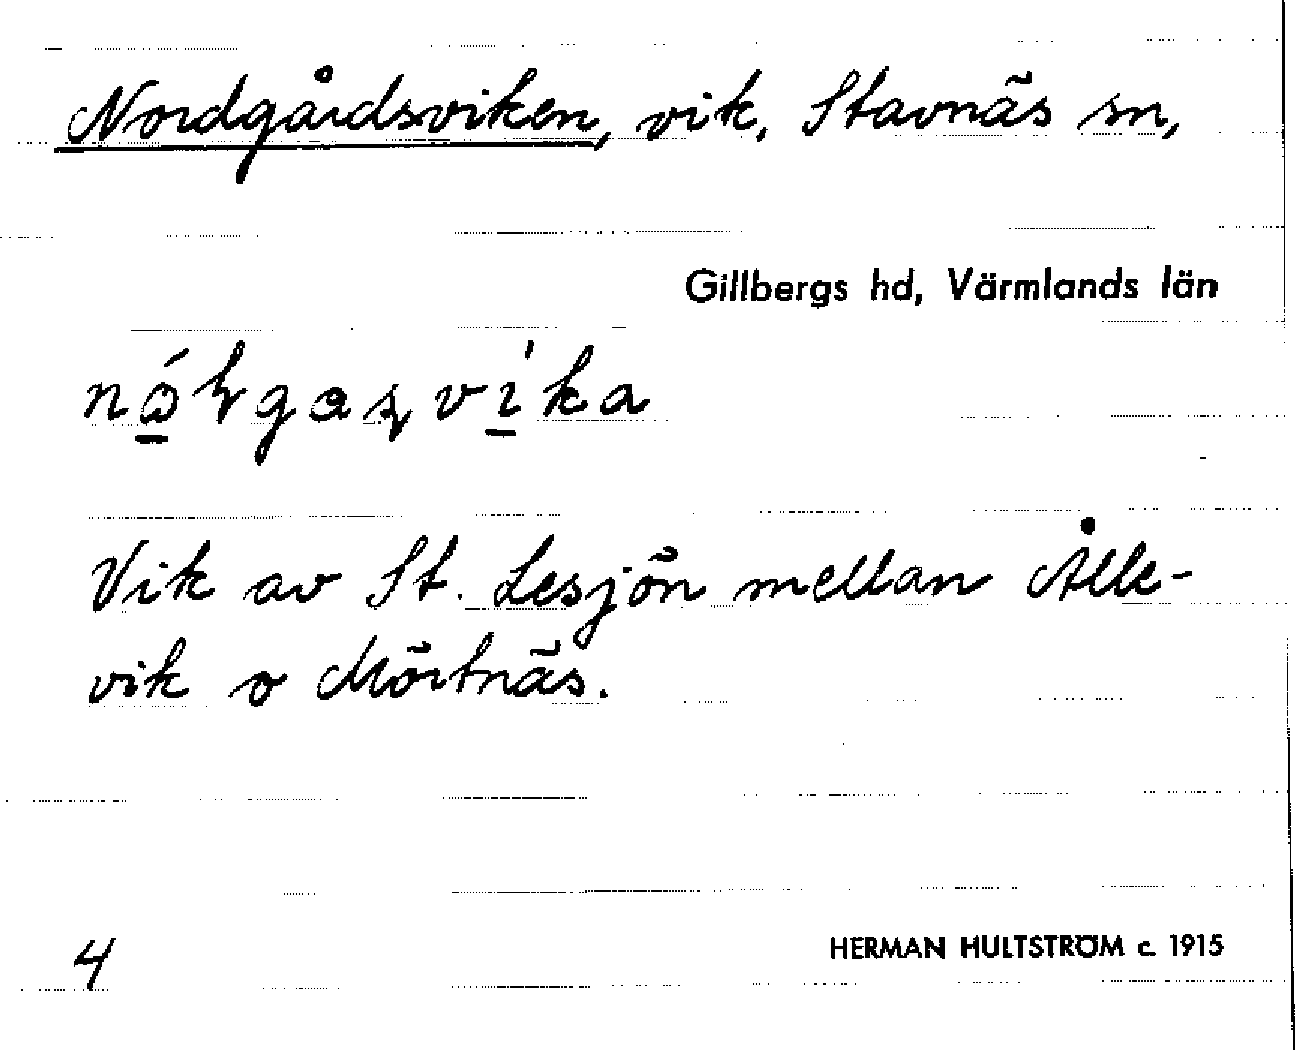 Nordgårdsviken, vik, Stavnäs sn,
Gillbergs hd, Värmlands län
Vik av St. Lesjön mellan Ålle-
vik o Mörtnäs.
4
HERMAN HULTSTRÖM c. 1915